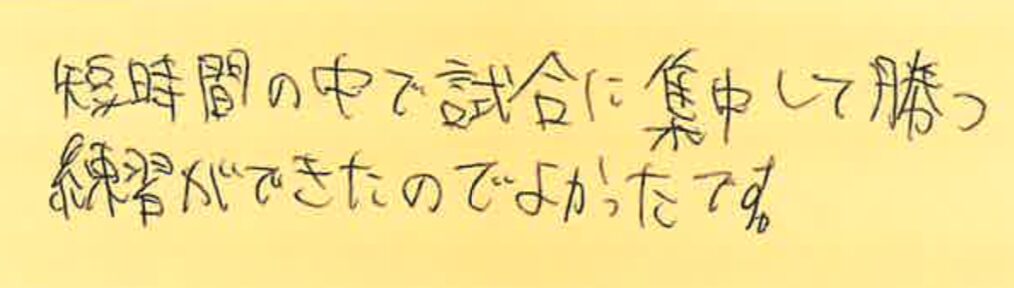 短時間の中で試合に集中して勝つ
練習ができたのでよかったです。